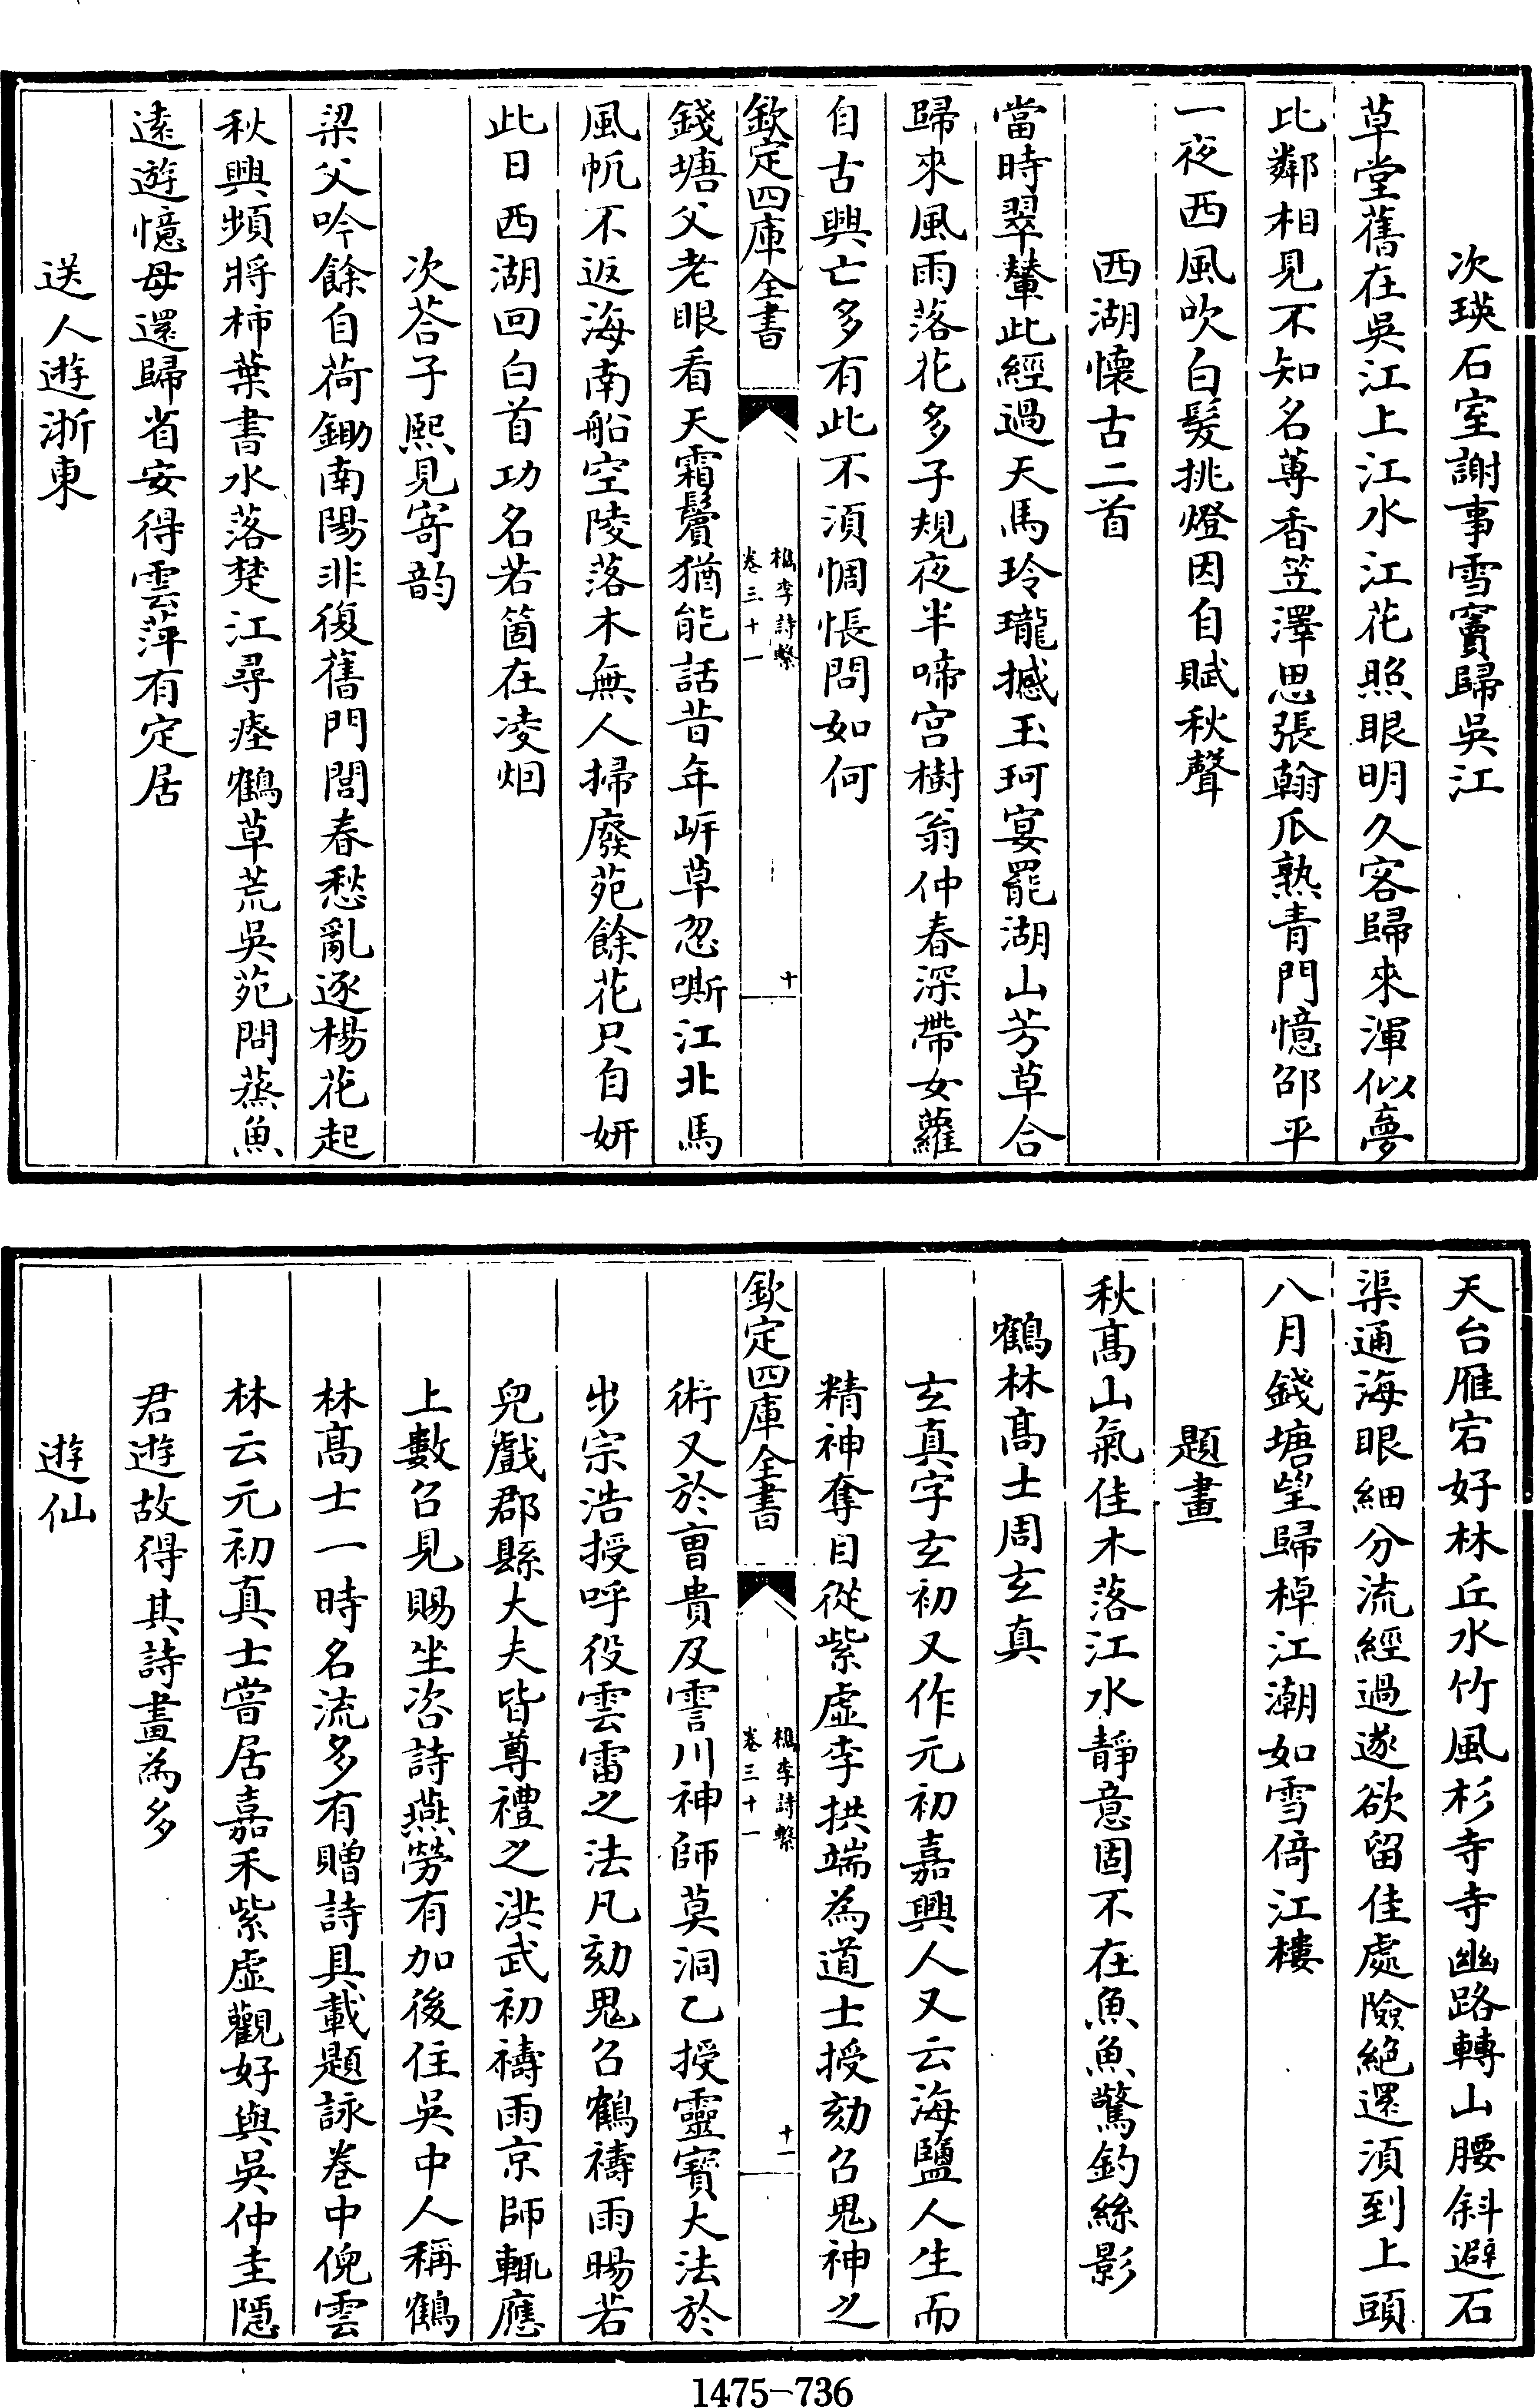 次瑛石室謝事雪竇歸吳江
草堂舊在吳江上江水江花照眼明久客歸來渾似夢
比鄰相見不知名蓴香笠澤思張翰瓜熟青門憶邵平
一夜西風吹白髮挑燈因自賦秋聲
西湖懷古二首
當時翠輦此經過天馬玲瓏撼玉珂宴罷湖山芳草合
歸來風雨落花多子規夜半啼宮樹翁仲春深帶女蘿
自古興亡多有此不須惆悵問如何
欽定四庫全書
檇李詩繫
卷三十一
十
錢塘父老眼看天霜鬢猶能話昔年岍草忽嘶江北馬
風帆不返海南船空陵落木無人掃廢苑餘花只自妍
此日西湖回白首功名若箇在凌烟
次荅子熙見寄韵
梁父吟餘自荷鋤南陽非復舊門閭春愁亂逐楊花起
秋興頻將柿葉書水落楚江尋瘞鶴草荒吳苑問蒸魚
遠遊憶母還歸省安得雲萍有定居
送人遊浙東
天台雁宕好林丘水竹風杉寺寺幽路轉山腰斜避石
渠通海眼細分流經過遂欲留佳處險絕還須到上頭
八月錢塘望歸棹江潮如雪倚江樓
題畫
秋高山氣佳木落江水靜意固不在魚魚驚釣絲影
鶴林高士周玄真
玄真字玄初又作元初嘉興人又云海鹽人生而
精神奪目從紫虛李拱端為道士授劾召鬼神之
欽定四庫全書
檇李詩繫
卷三十一
十一
術又於曹貴及霅川神師莫洞乙授靈寶大法於
步宗浩授呼役雲雷之法凡劾鬼召鶴禱雨暘若
兒戲郡縣大夫皆尊禮之洪武初禱雨京師輒應
上數召見賜坐咨詩燕勞有加後住吳中人稱鶴
林高士一時名流多有贈詩具載題詠卷中倪雲
林云元初真士嘗居嘉禾紫虛觀好與吳仲圭隱
君遊故得其詩畫為多
遊仙
1475-736